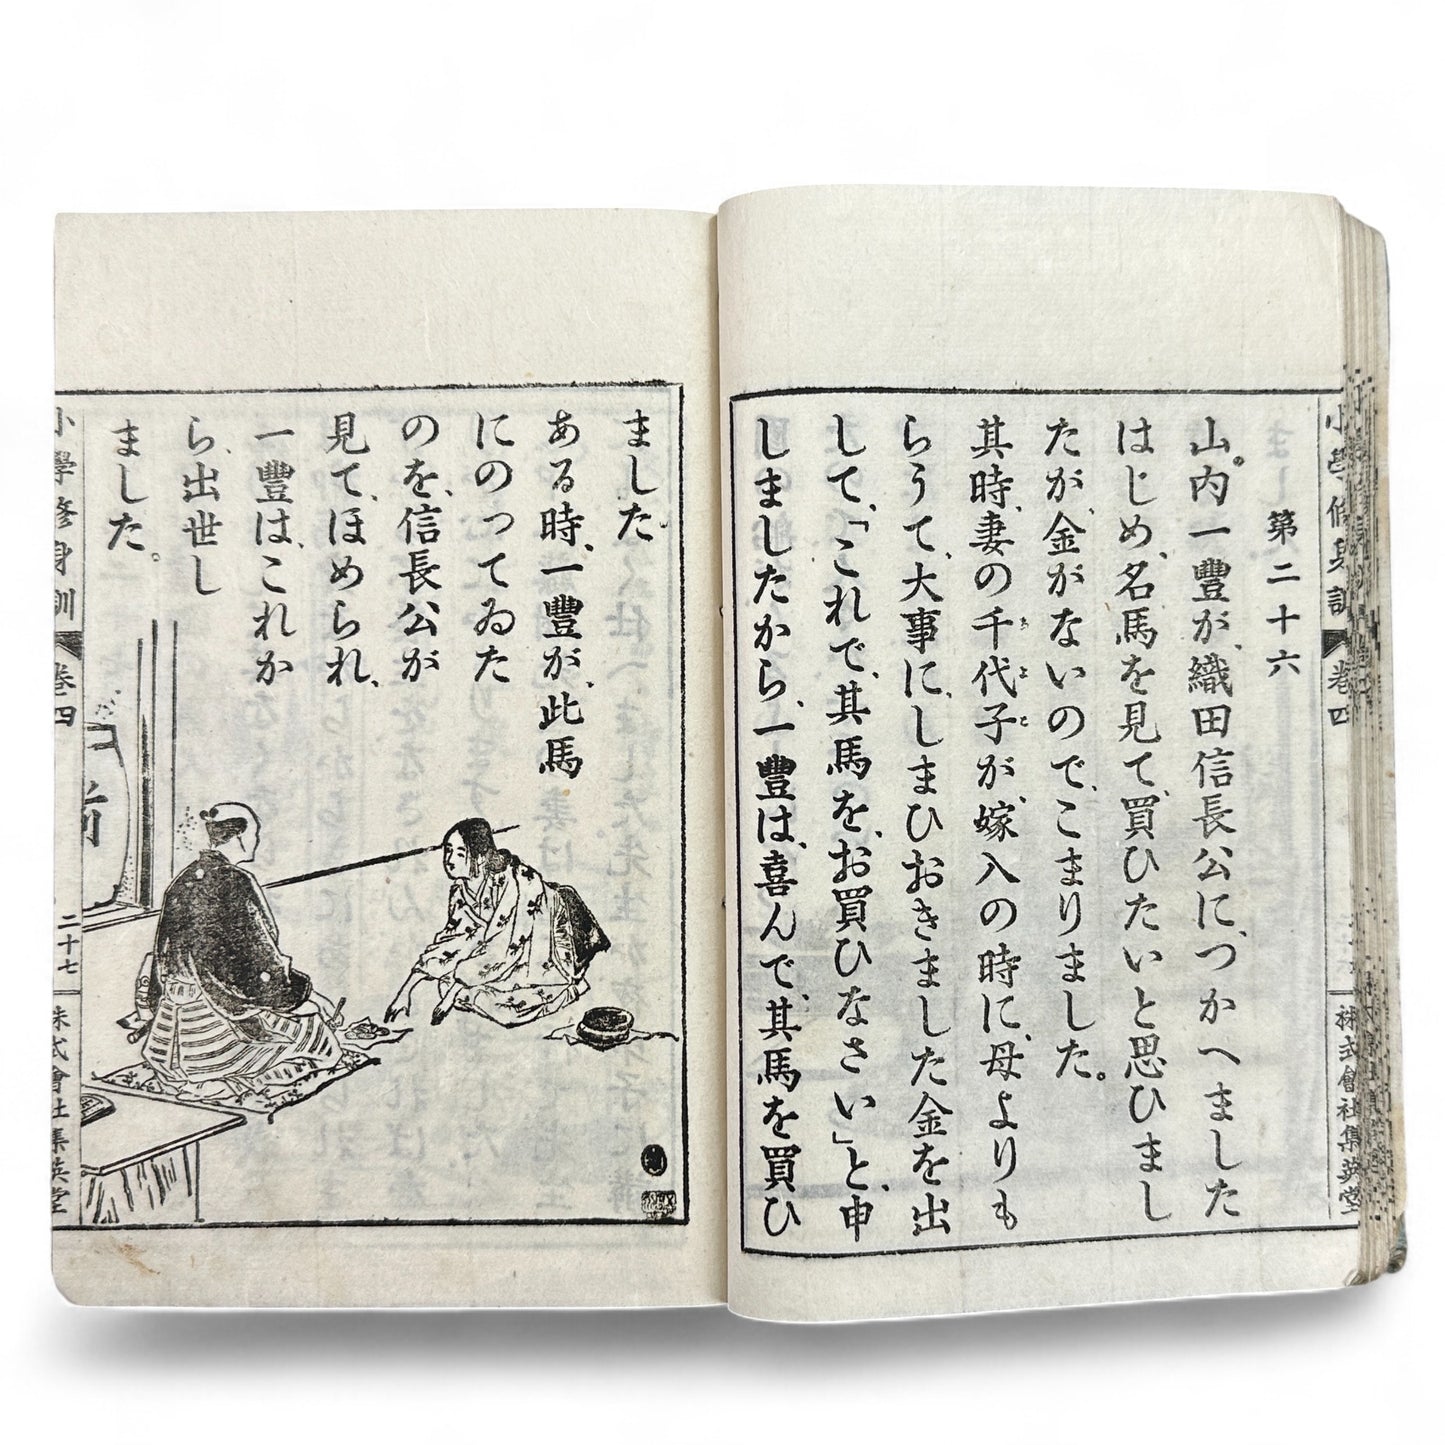 小學修身訓 卷四 株式會社集英堂
第二十六
山内一豐が、織田信長公に、つかへました
はじめ、名馬を見て、買ひたいと思ひまし
たが、金がないので、こまりました。
其時、妻の千代子が、嫁入の時に、母よりも
ちよこ
らうて、大事に、しまひおきました金を出
して、「これで、其馬を、お買ひなさい」と、申
しましたから、一豐は、喜んで、其馬を買ひ
ました。
ある時、一豐が、此馬
にのつてゐた
のを、信長公が
見て、ほめられ、
一豐は、これか
ら、出世し
ました。
小學修身訓 卷四 二十七 株式會社集英堂